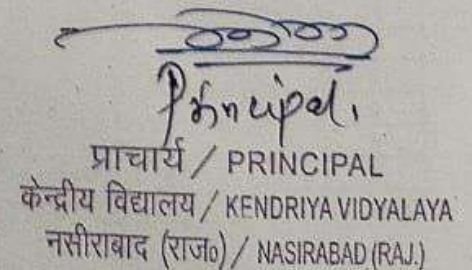 Principal.
प्राचार्य / PRINCIPAL
केन्द्रीय विद्यालय / KENDRIYA VIDYALAYA
नसीराबाद (राज०) / NASIRABAD (RAJ.)